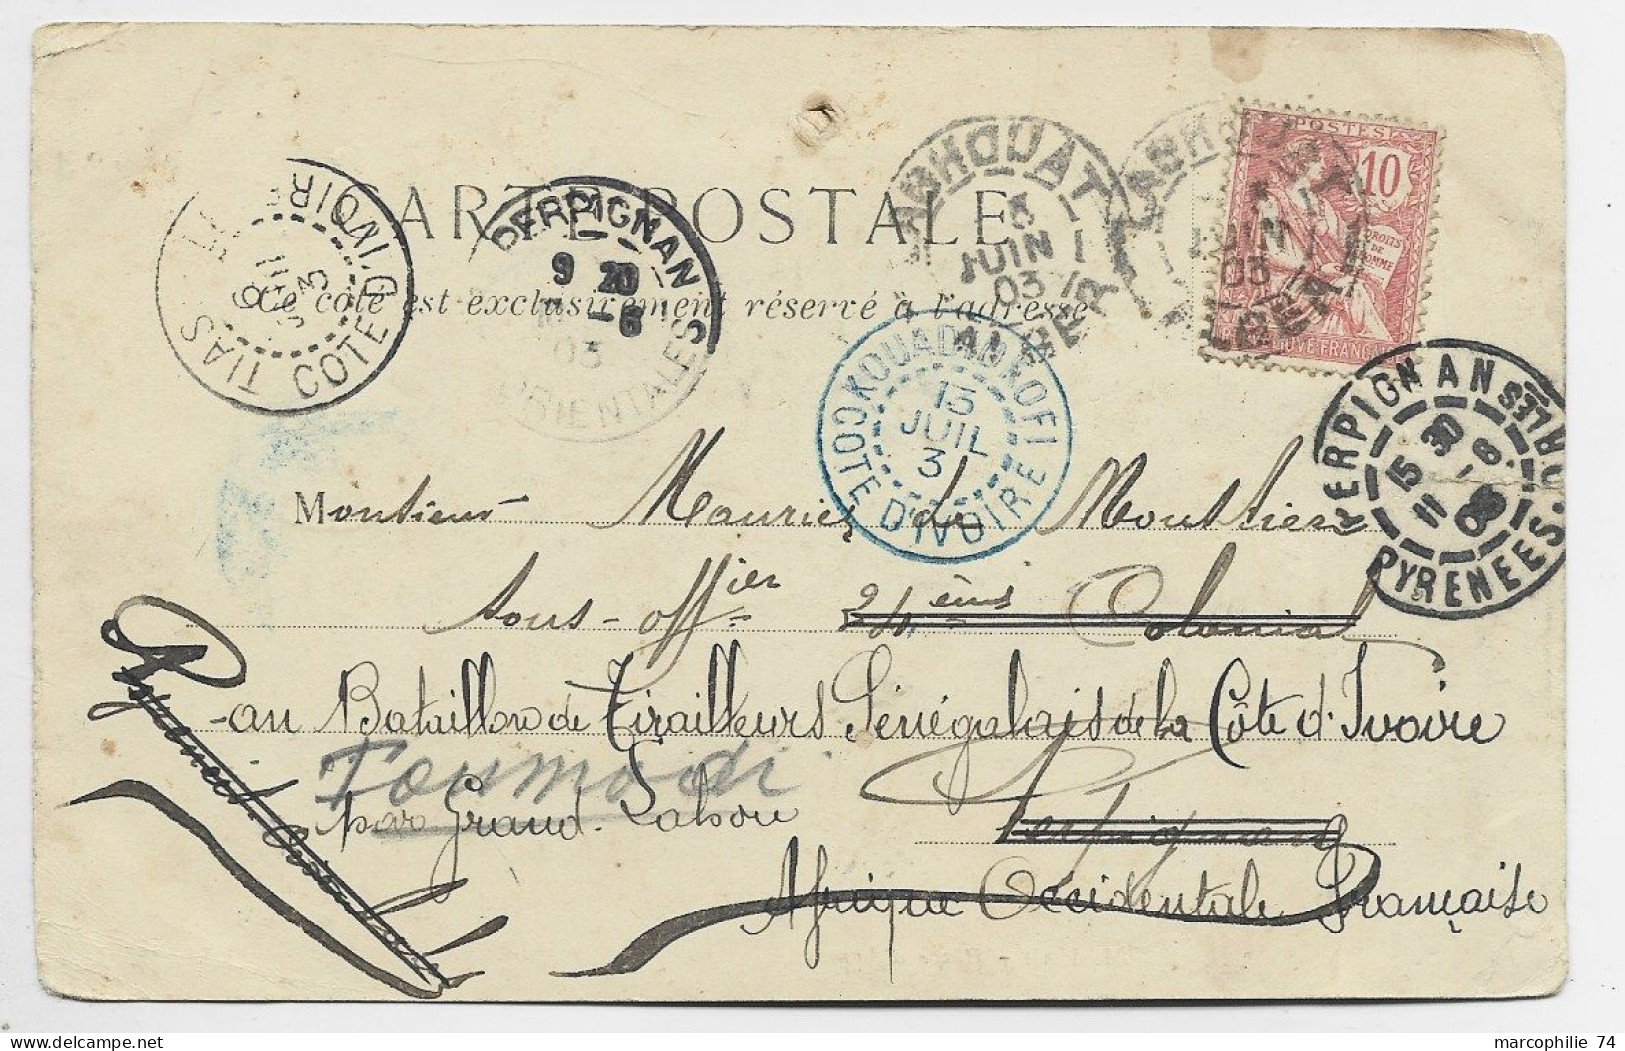 CARTE POSTALE
Ce côté est exclusivement réservé à l'adresse
POSTES
10
DROITS DE HOMME
LAGHOUAT
5 JUIN 03
ALGER
LAGHOUAT
JUIN 03
ALGER
TIAS
COTE D'IVOIRE
PERPIGNAN
9 20
-6
03
ORIENTALES
KOUADIOKOFI
15 JUIL 3
COTE D'IVOIRE
PERPIGNAN
15 30
11 -6
03
PYRENEES-ORLES
Monsieur Maurice de Moustier
sous-officier 24ème Colonial
au Bataillon de Tirailleurs Sénégalais de la Côte d'Ivoire
Toumodi
par Grand-Lahou
Perpignan
Afrique Occidentale Française
marcophilie 74